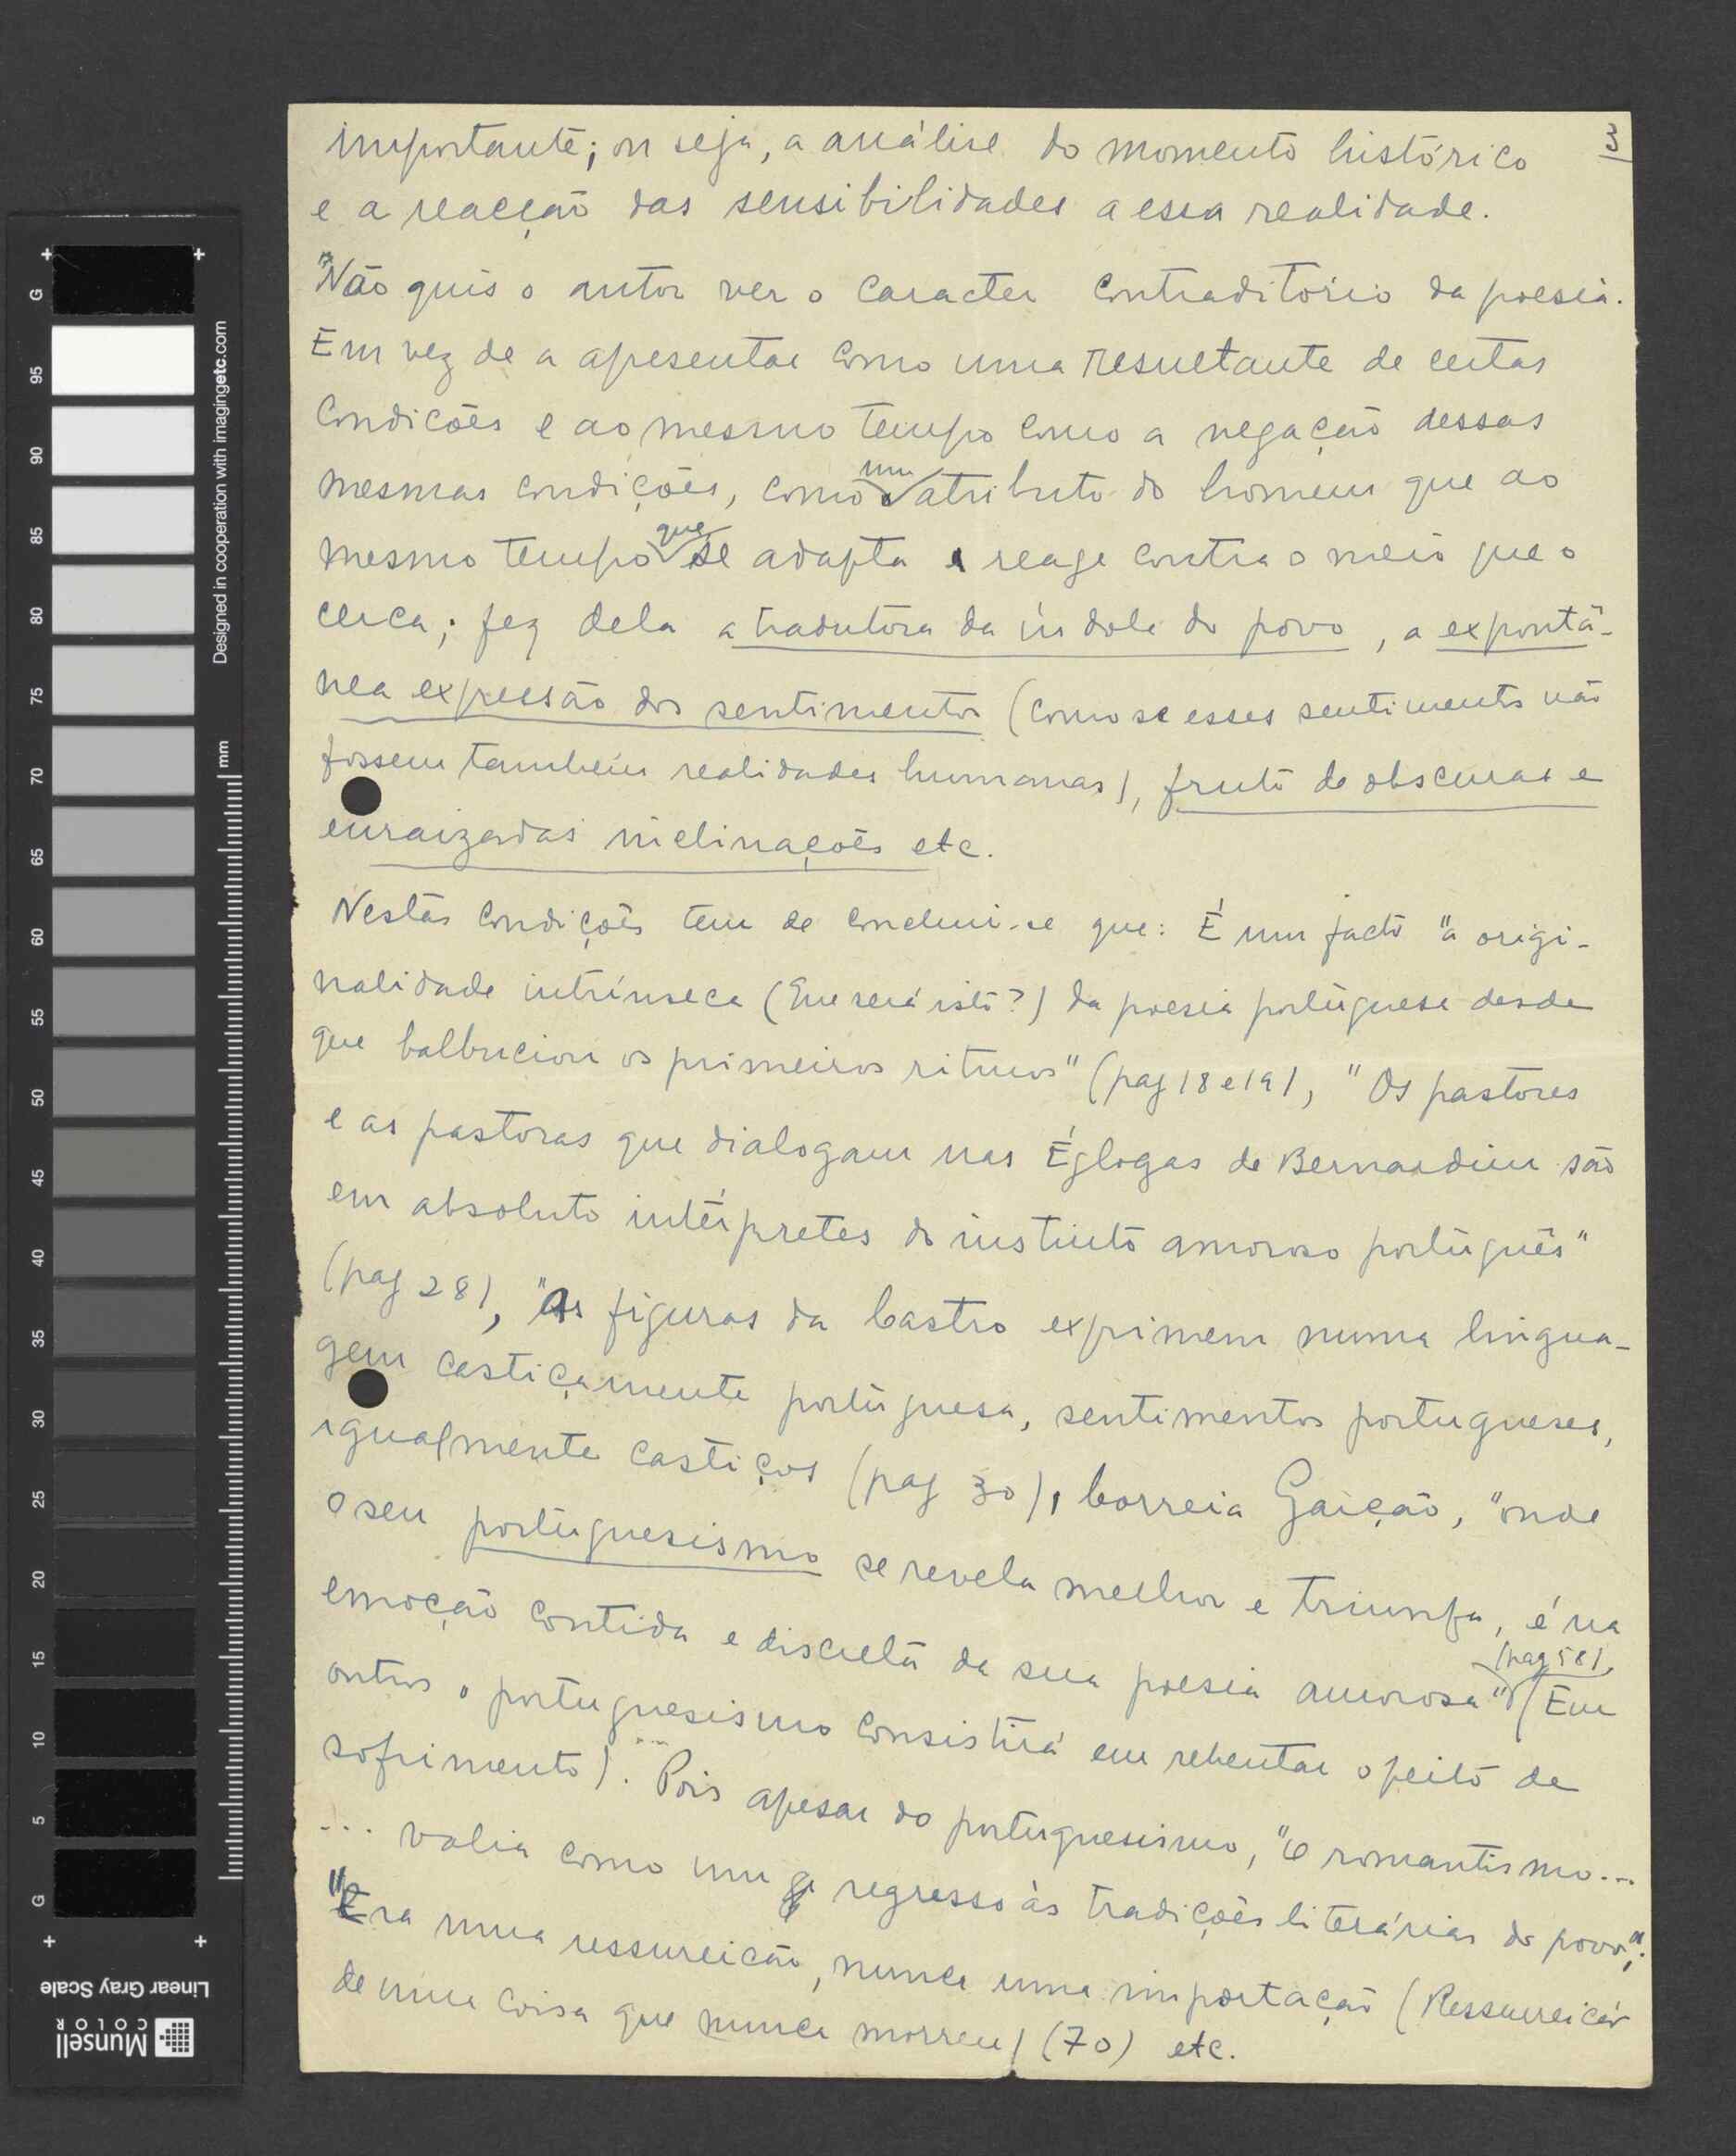 3
importante; ou seja, a análise do momento histórico
e a reacção das sensibilidades a essa realidade.
"Não quis o autor ver o caracter contraditório da poesia.
Em vez de a apresentar como uma resultante de certas
condições e ao mesmo tempo como a negação dessas
mesmas condições, como um atributo do homem que ao
mesmo tempo que se adapta reage contra o meio que o
cerca; fez dela a tradutora da índole do povo, a expontâ-
nea expressão dos sentimentos (como se esses sentimentos não
fossem também realidades humanas), fruto de obscuras e
enraizadas inclinações etc.
Nestas condições tem de concluir-se que: É um facto "a origi-
nalidade intrínseca (Que será isto?) da poesia portuguesa desde
que balbuciou os primeiros ritmos" (pag 18 e 19), "Os pastores
e as pastoras que dialogam nas Églogas de Bernardim são
em absoluto intérpretes do instinto amoroso português"
(pag 28), "As figuras da Castro exprimem numa lingua-
gem castiçamente portuguesa, sentimentos portugueses,
igualmente castiços (pag 30), Correia Garção, "onde
o seu portuguesismo se revela melhor e triunfa, é na
emoção contida e discreta da sua poesia amorosa" (pag 58). (Em
outros o portuguesismo consistirá em rebentar o peito de
sofrimento)... Pois apesar do portuguesismo, "O romantismo...
... valia como um regresso às tradições literárias do povo";
"Era uma ressureição, nunca uma importação (Ressureição
de uma coisa que nunca morreu) (70) etc.
G
95
90
85
80
75
70
65
60
55
50
45
40
35
30
25
20
15
10
5
G
Designed in cooperation with imagingetc.com
mm
Linear Gray Scale
Munsell
COLOR